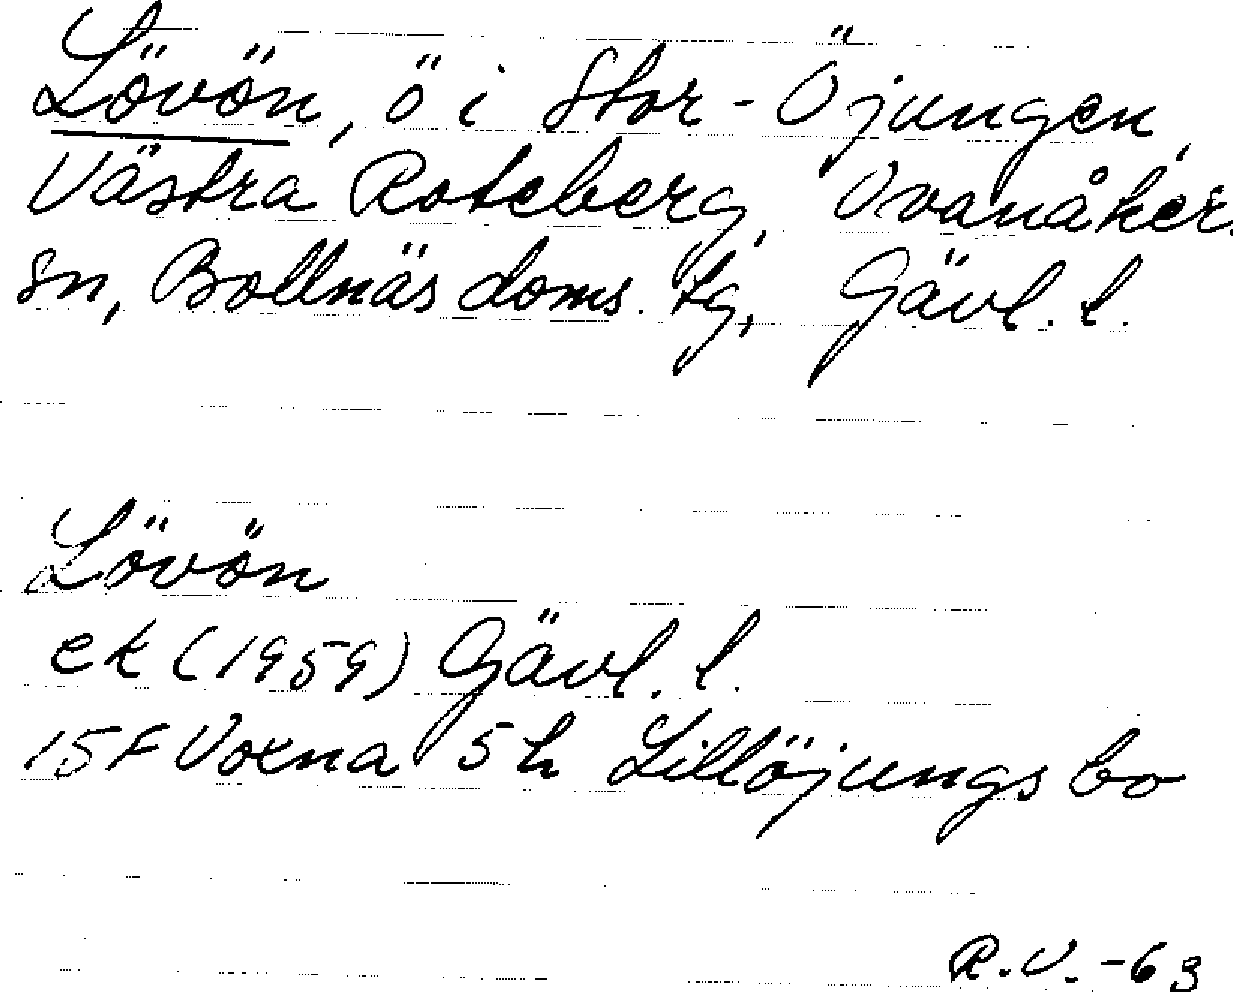 Lövön, ö i Stor-Öjungen,
Västra Roteberg, Ovanåker
sn, Bollnäs doms. tg, Gävl. l.
Lövön
ek (1959) Gävl. l.
15F Voxna 5h Lillöjungsbo
R.V.-63